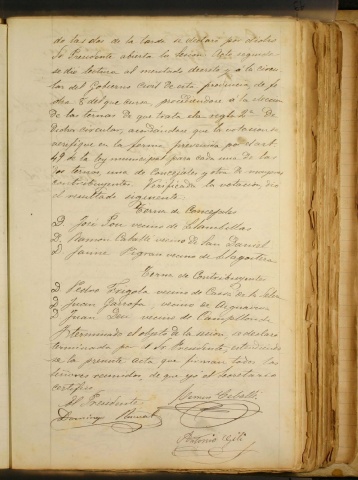 do las dos de la tarde se declaró por dicho
Sr Presidente abierta la sesion. Acto seguido
se dio lectura al mentado decreto y a la circu-
lar del Gobierno Civil de esta provincia, de fe
cha 8 del que cursa, procediendose a la eleccion
de las ternas de que trata la regla 2ª de
dicha circular, acordandose que la votacion se
verifique en la forma prevenida por el art.
49 de la ley municipal para cada una de las
dos ternas, una de Concejales y otra de mayores
contribuyentes. Verificada la votacion, dio
el resultado siguiente.
Terna de Concejales
D. José Pou vecino de Llambillas
D. Ramon Caballé vecino de San Daniel
D. Jaime vecino de Llagostera
Terna de Contribuyentes
D. Pedro vecino de Cassá de la Selva
D. Juan Garrofa, vecino de
D. Juan Deu vecino de Campllonch
Y terminado el objeto de la sesion, se declaró
terminada por el Sr Presidente, estendiendo-
se la presente acta que firman todos los
señores reunidos, de que yo el Secretario
certifico.
El Presidente,
Domingo
Antonio Gili